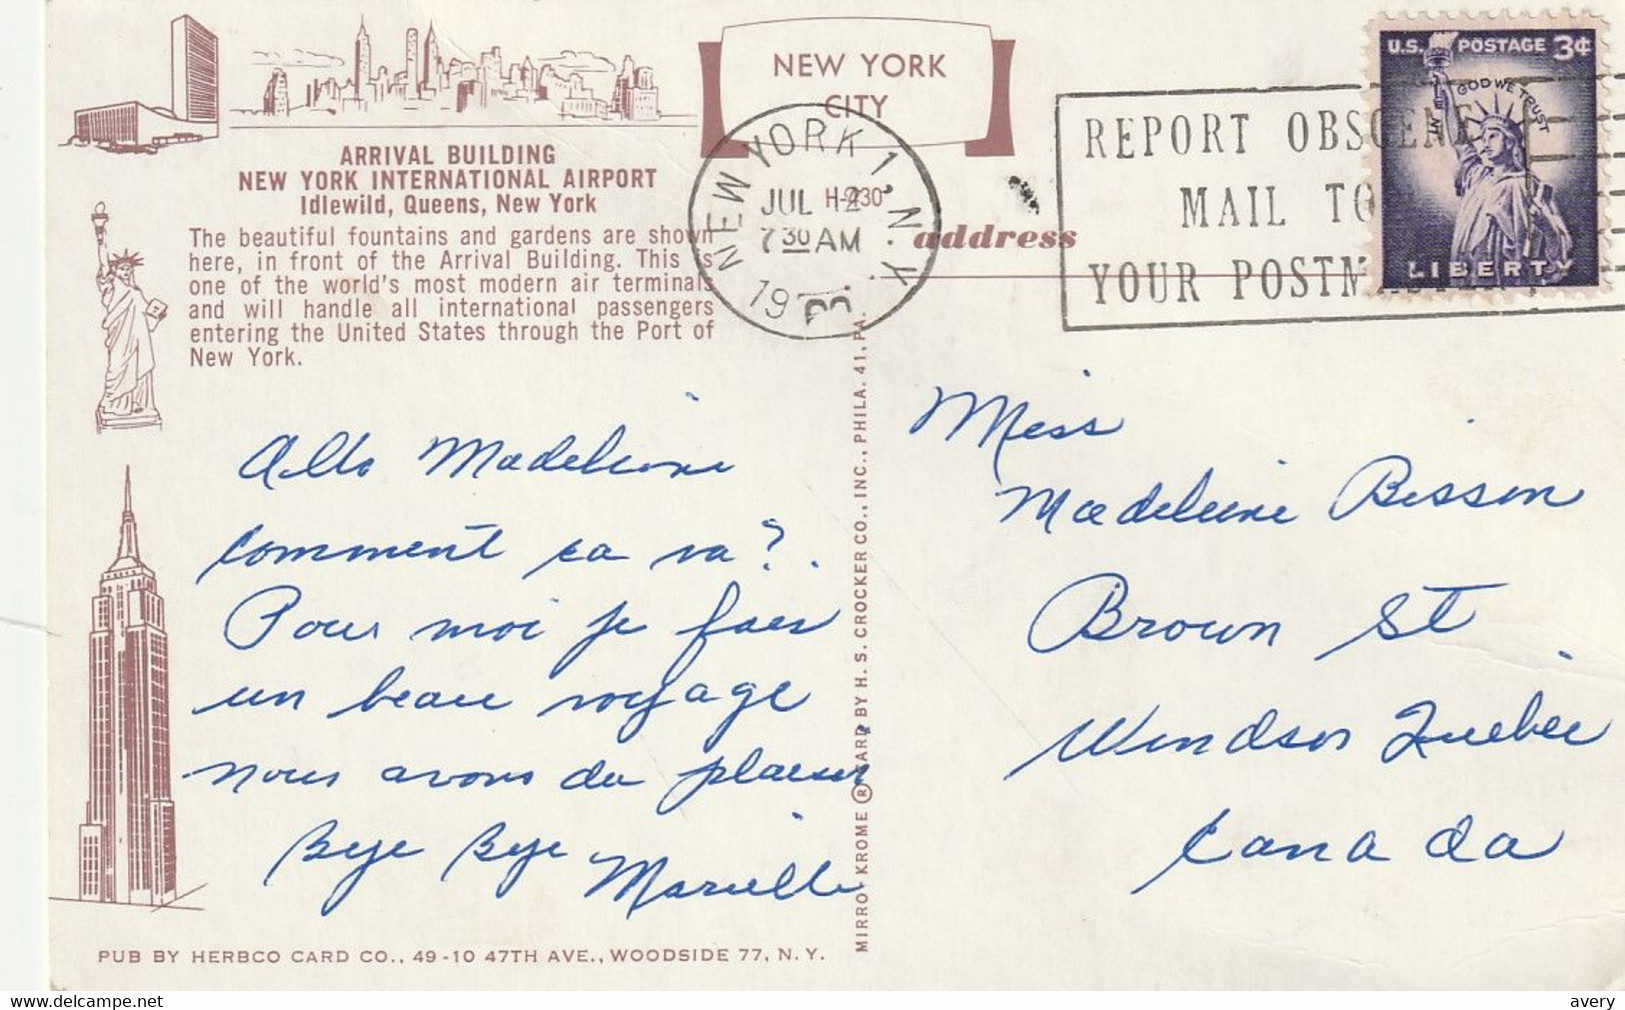 NEW YORK
CITY
U.S. POSTAGE 3¢
IN GOD WE TRUST
LIBERTY
REPORT OBSCENE
MAIL TO
YOUR POSTM
NEW YORK 1, N.Y.
JUL 2
7 30 AM
19
H-230
ARRIVAL BUILDING
NEW YORK INTERNATIONAL AIRPORT
Idlewild, Queens, New York
The beautiful fountains and gardens are shown
here, in front of the Arrival Building. This is
one of the world's most modern air terminals
and will handle all international passengers
entering the United States through the Port of
New York.
address
Allo Madeleine
comment ca va?
Pour moi je fais
un beau voyage
nous avons du plaisir
Bye Bye Marielle
Miss
Madeleine Bisson
Brown St
Windsor Quebec
Canada
MIRRO-KROME ® CARD BY H. S. CROCKER CO., INC., PHILA. 41, PA.
PUB BY HERBCO CARD CO., 49-10 47TH AVE., WOODSIDE 77, N. Y.
https://www.delcampe.net
avery